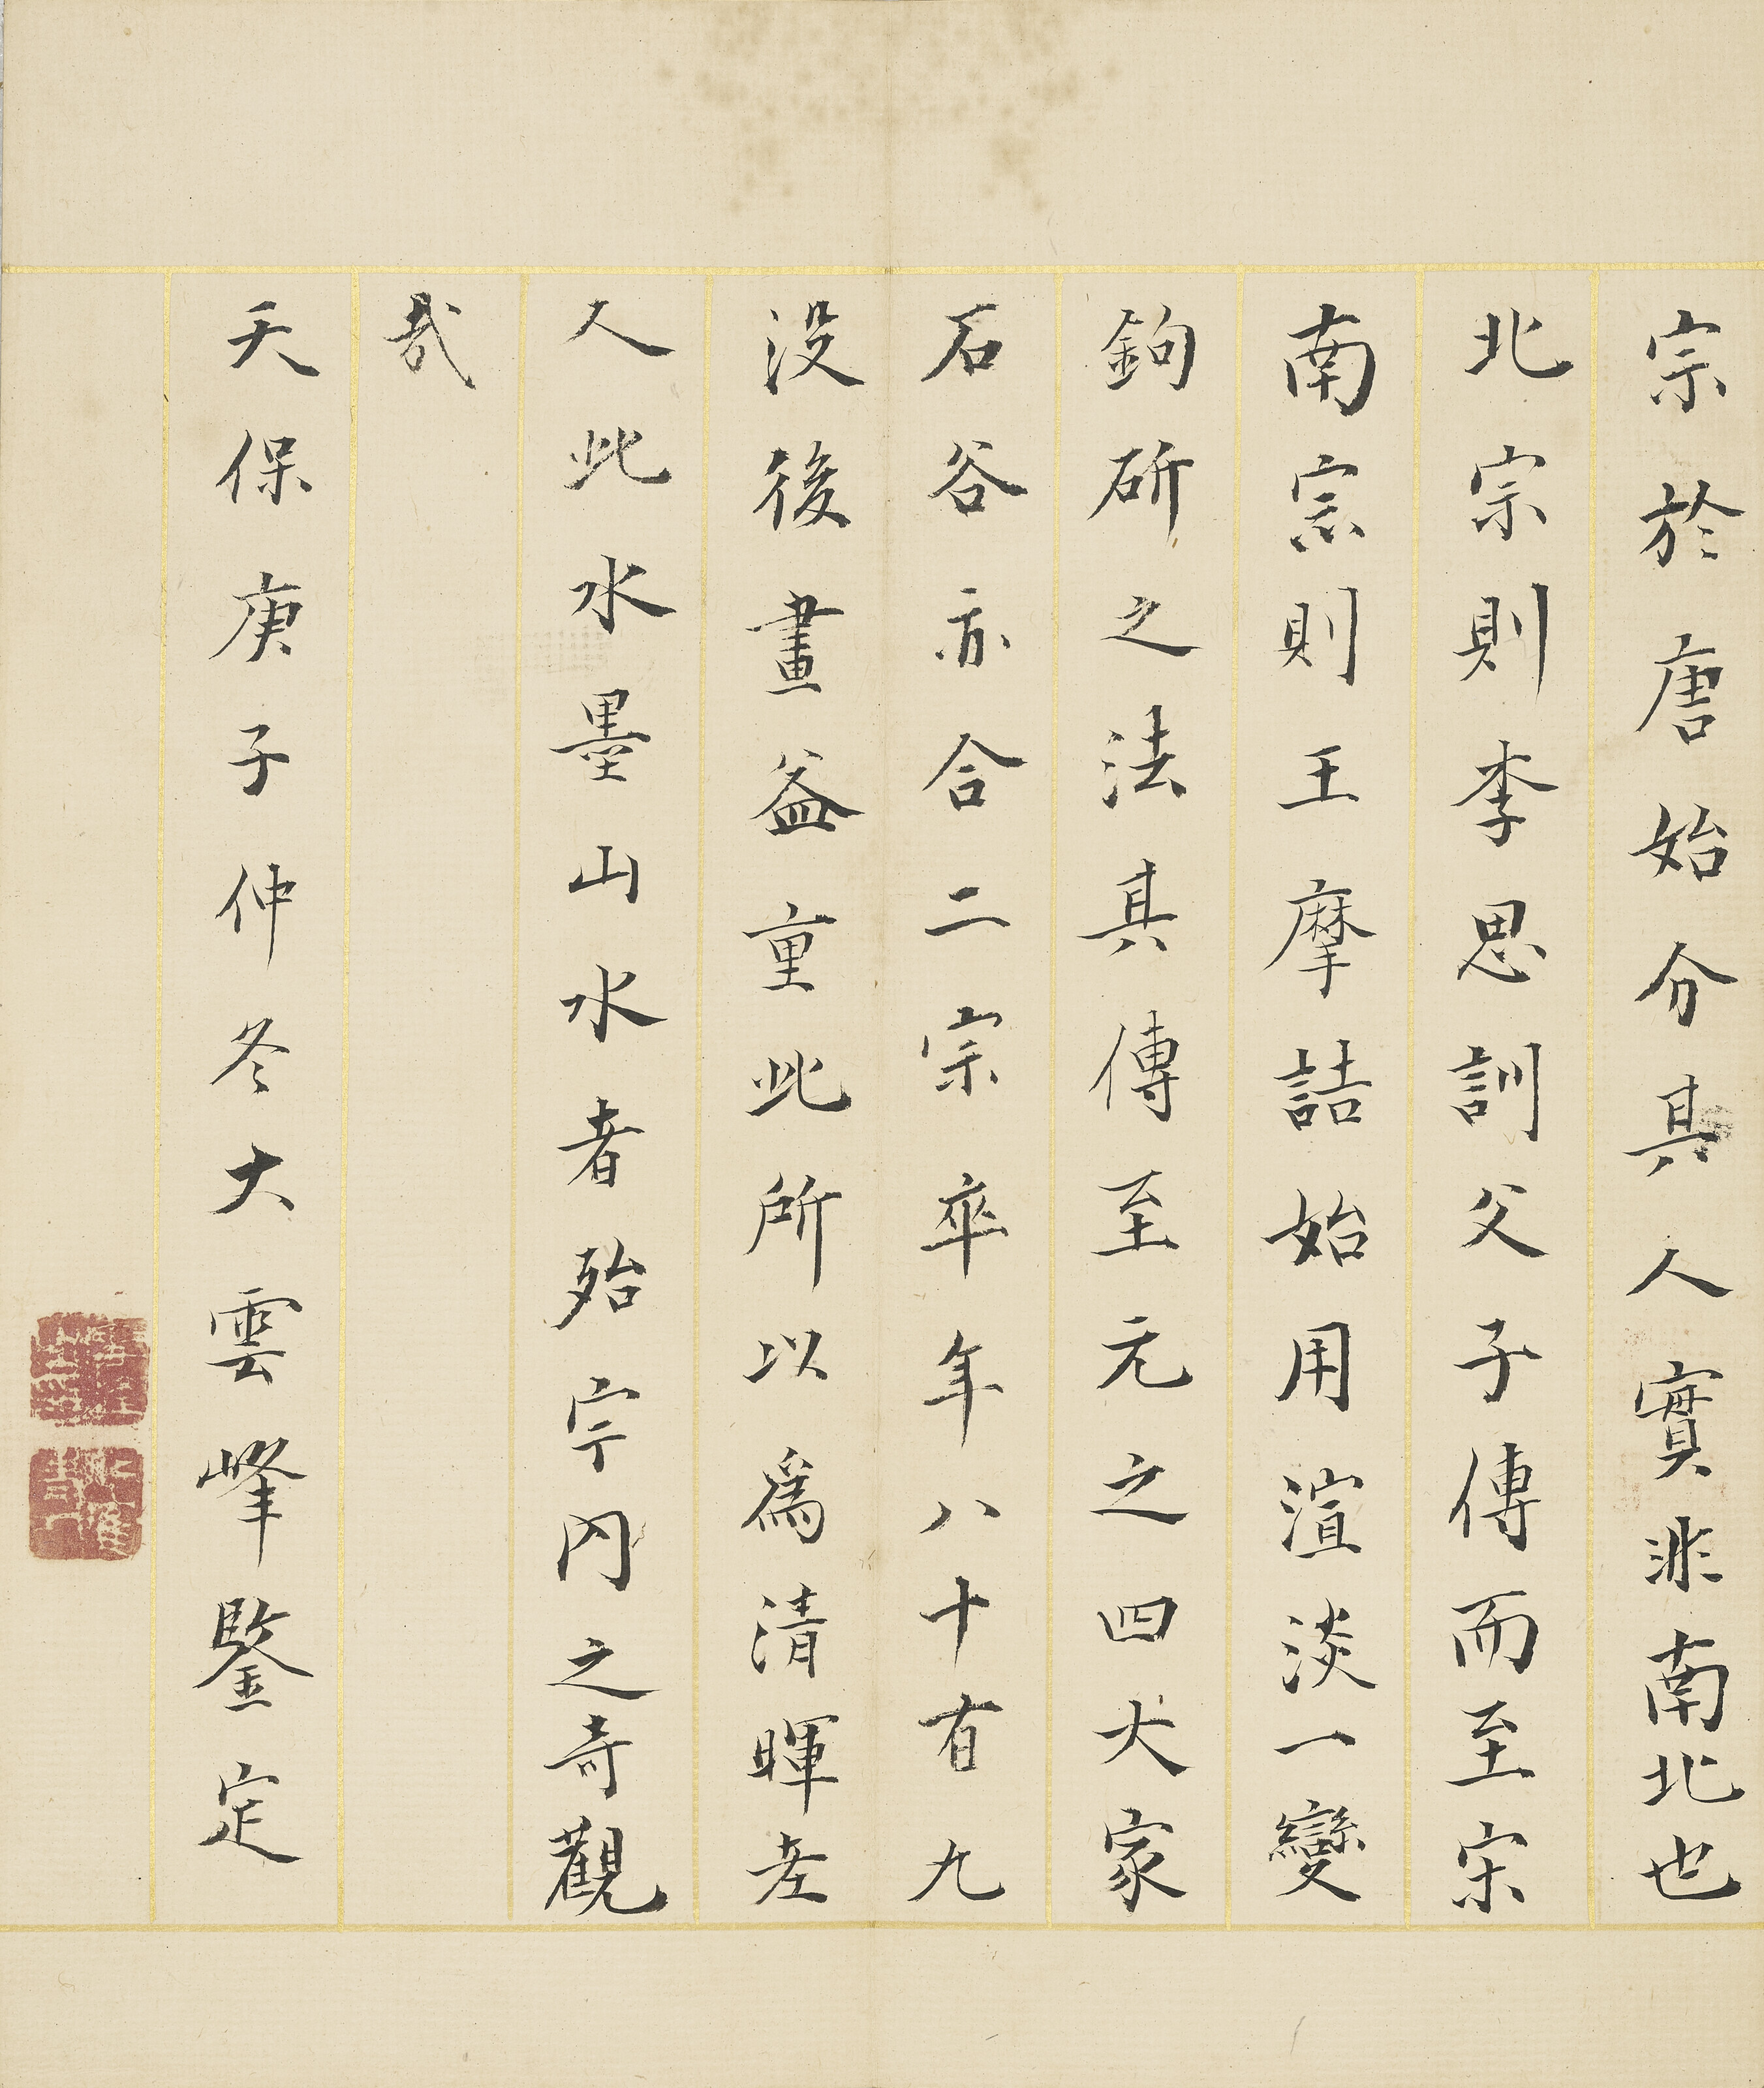 宗於唐始分其人實非南北也
北宗則李思訓父子傳而至宋
南宗則王摩詰始用渲淡一變
鉤斫之法其傳至元之四大家
石谷亦合二宗卒年八十有九
没後畫益重此所以爲清暉老
人此水墨山水者殆宇内之奇觀
哉
天保庚子仲冬大雲峰鑒定